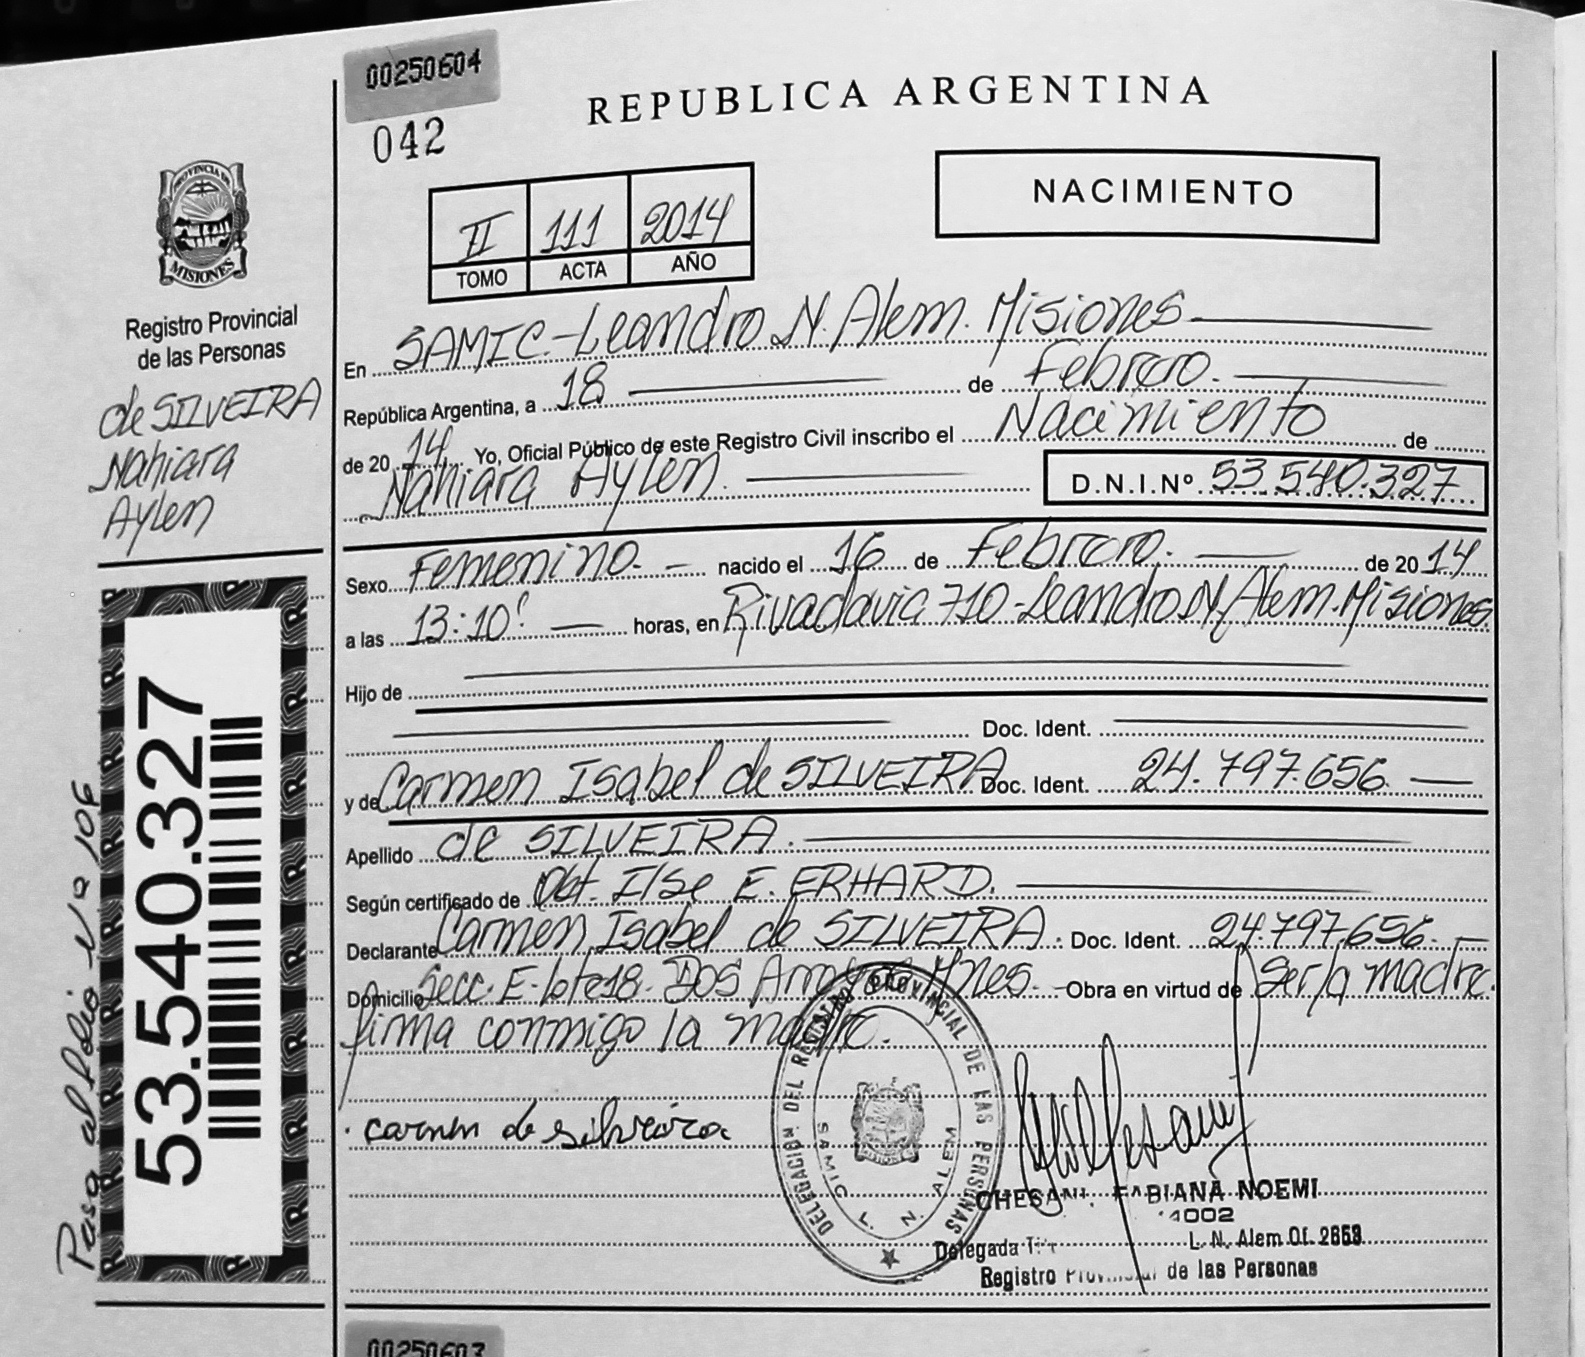 00250604
042
REPUBLICA ARGENTINA
NACIMIENTO
II 111 2014
TOMO ACTA AÑO
PROVINCIA DE
MISIONES
Registro Provincial
de las Personas
de SILVEIRA
Nahiara
Aylen
En SAMIC-Leandro N. Alem. Misiones
República Argentina, a 18 de Febrero.
de 20 14 Yo, Oficial Público de este Registro Civil inscribo el Nacimiento de
Nahiara Aylen. D.N.I.Nº 53.540.327
Sexo Femenino. nacido el 16 de Febrero. de 20 14
a las 13:10' horas, en Rivadavia 710-Leandro N. Alem. Misiones.
Hijo de
Doc. Ident.
y de Carmen Isabel de SILVEIRA Doc. Ident. 24.797.656.
Apellido de SILVEIRA.
Según certificado de Obt. Ilse E. ERHARD.
Declarante Carmen Isabel de SILVEIRA. Doc. Ident. 24.797.656.
Domicilio Secc. E-lote 18. DOS Arroyos Mnes. Obra en virtud de ser la madre.
firma conmigo la madre.
carmen de silveira
DELEGACION DEL REGISTRO PROVINCIAL DE LAS PERSONAS
SAMIC L. N. ALEM
CHESANI FABIANA NOEMI
4002
Delegada L. N. Alem Of. 2653
Registro Provincial de las Personas
53.540.327
Pasa al folio Nº 106
00250603